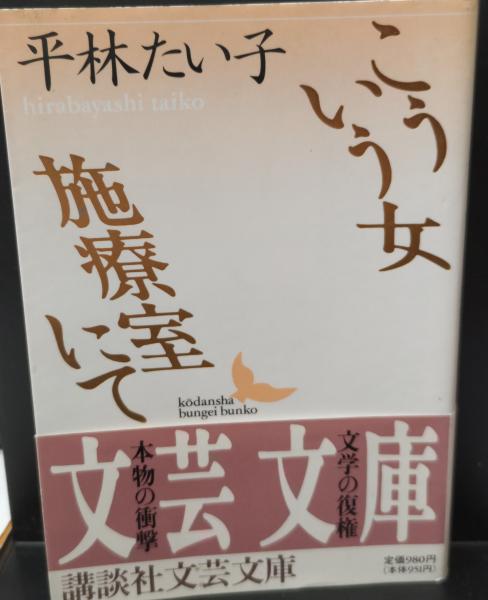 平林たい子
hirabayashi taiko
こういう女
施療室にて
kōdansha
bungei bunko
文芸文庫
文学の復権
本物の衝撃
講談社文芸文庫
定価980円
(本体951円)